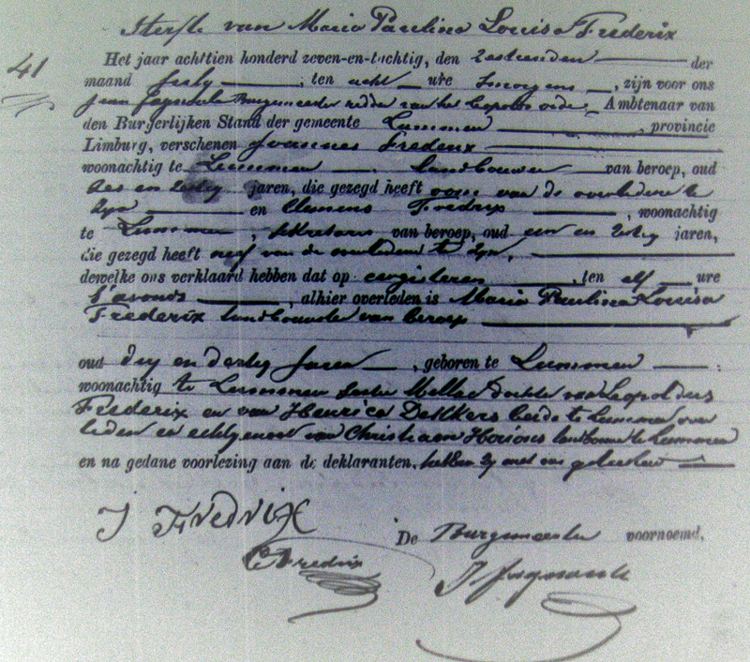 Sterfte van Maria Paulina Louisa Frederix
41
Het jaar achttien honderd zeven-en-tachtig, den zestienden der
maand July, ten acht ure smorgens, zijn voor ons
Jean Burgemeester ridder van het Leopolds orde, Ambtenaar van
den Burgerlijken Stand der gemeente Lummen, provincie
Limburg, verschenen Joannes Frederix
woonachtig te Lummen landbouwer van beroep, oud
zes en zestig jaren, die gezegd heeft oom van de overledene te
zyn en Clemens Fredrix, woonachtig
te Lummen, sekretaris van beroep, oud een en zestig jaren,
die gezegd heeft neef van de overledene te zyn,
dewelke ons verklaard hebben dat op eergisteren, ten elf ure
s'avonds, alhier overleden is Maria Paulina Louisa
Frederix landbouwster van beroep
oud dry en dertig Jaren, geboren te Lummen
woonachtig te Lummen dochter van Leopoldus
Frederix en van Henrica Dekkers beide te Lummen over
leden en echtgenoot van Christiaen landbouwer te Lummen
en na gedane voorlezing aan de deklaranten, hebben zy met ons geteekend
J Fredrix
De Burgmeester voornoemd,
C Fredrix